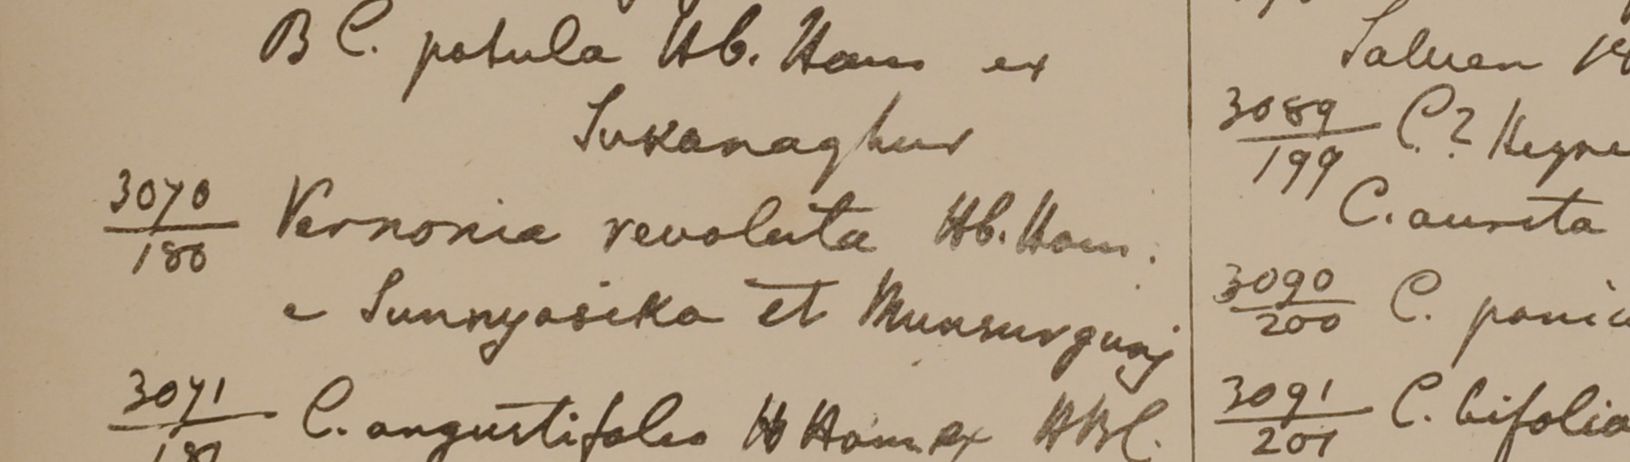 B C. patula Hb. Ham ex
Sukanaghur
3070 Vernonia revoluta Hb. Ham.
180
e Sunnyasika et Munsurgunj
3071 C. angustifolia H Ham ex HBC.
Saluen
3089 C? Heyne
199
C. aurita
3090 C. panic
200
3091 C. bifolia
201